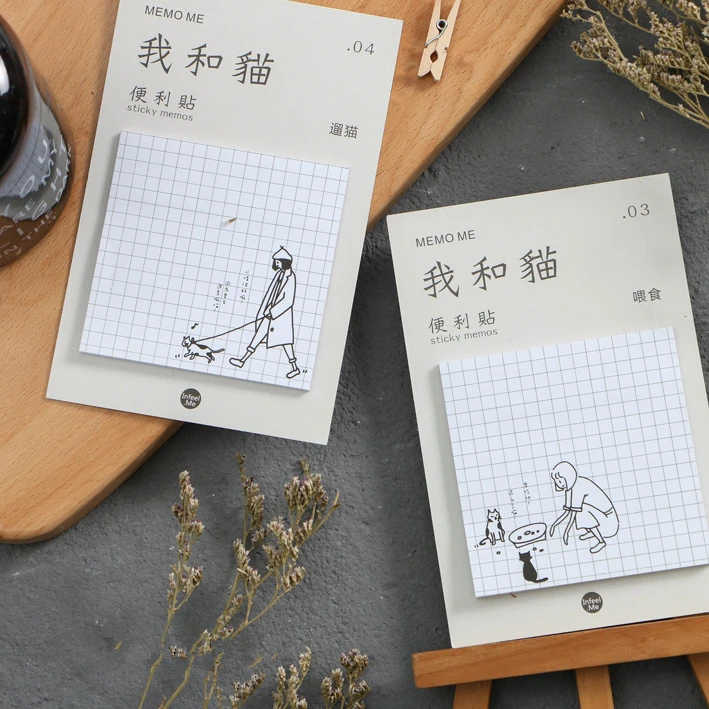 MEMO ME
.04
我和貓
便利貼
sticky memos
遛猫
Infeel
Me
MEMO ME
.03
我和貓
便利貼
sticky memos
喂食
Infeel
Me